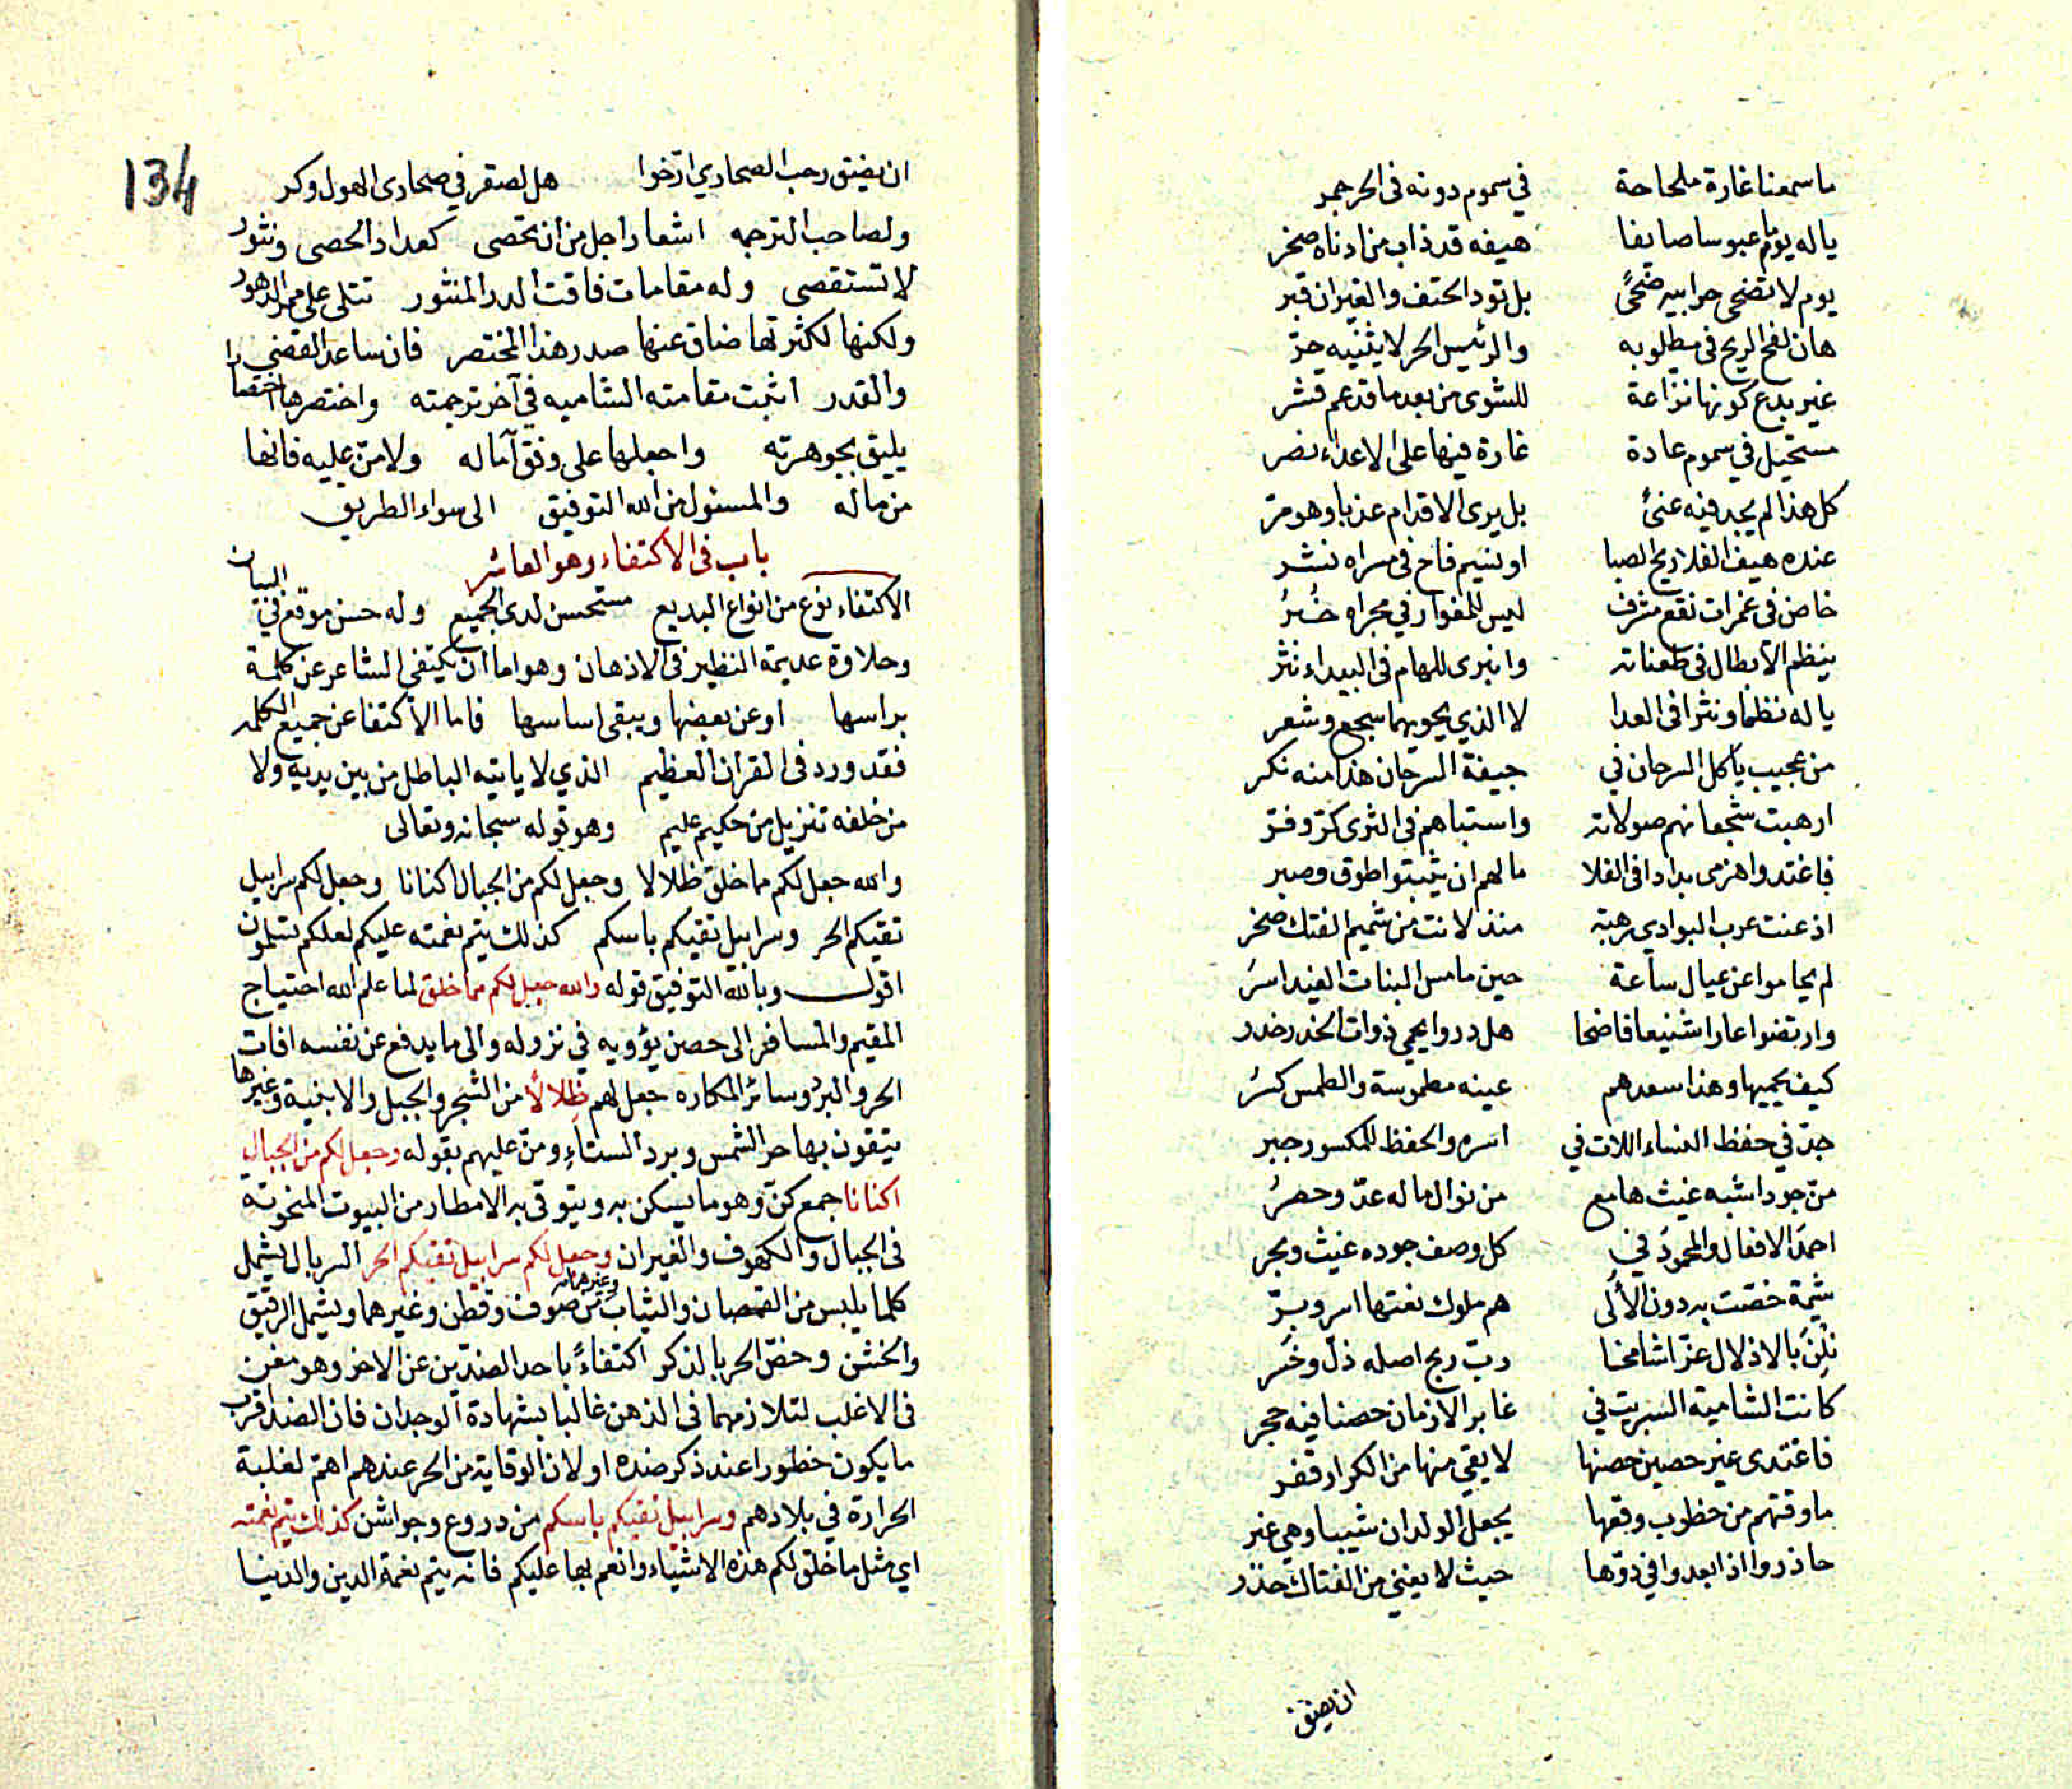 ما سمعنا غارة ملحاحة في سموم دونه في الحر جمر
يا له يوما عبوسا صايفا هيفه قد ذاب من ادناه صخر
يوم لا تضحى حرابيه ضحًى بل تود الحتف والغيران قبر
هان لفح الريح في مطلوبه والرئيس الحر لا يثنيه حرّ
غير بدع كونها نزاعة للشوى من بعد ما قد عم قشر
مستحيل في سموم عادة غارة فيها على الاعداء نصر
كل هذا لم يجد فيه عنىً بل يرى الاقدام عذبا وهو مرّ
عنده هيف الفلا ريح الصبا او نسيم فاح في مسراه نشر
خاض في غمرات نقع مشرف ليس للمغوار في مجراه خُبرُ
ينظم الابطال في طعناته وانبرى للهام في البيداء نثر
يا له نظما ونثرا في العدا لا الذي يحويهما سجع وشعر
من عجيب ياكل السرحان في جيفة السرحان هذا منه نكر
ارهبت شجعانهم صولاته واستباهم في الثرى كرّ وفرّ
فاغتدوا هزمى بدادا في الفلا ما لهم ان يثبتوا طوق وصبر
اذعنت عرب البوادي رهبة منذ لانت من شميم الفتك صخر
لم يحاموا عن عيال ساعة حين ما مس البنات الغيد اسرُ
وارتضوا عارا شنيعا فاضحا هل دروا يحمي ذوات الخدر خدر
كيف يحميها وهذا سعدهم عينه مطموسة والطمس كسرُ
جدّ في حفظ النساء اللات في اسره والحفظ للمكسور جبر
من جودا شبه غيث هامع من نوال ما له عدّ وحصرُ
احمد الافعال والمحمود في كل وصف جوده غيث وبحر
شيمة خصّت به دون الأُلى هم ملوك نعتها اسر وبرّ
نِلْنَ بالاذلال عزّا شامخا ربّ ربح اصله ذلّ وخسر
كانت الشامية السبريت في غابر الازمان حصنا فيه حجر
فاغتدى غير حصين حصنها لا يقي منها من الكرار قفر
ما وقتهم من خطوب وقعها يجعل الولدان شيبا وهي غبر
حاذروا اذا ابعدوا في دوّها حيث لا يغني من الفتاك حذر
ان يضيق
134
ان يضيق رحب الصحاري ارّخوا هل لصقر في صحارى الهول وكر
ولصاحب الترجمه اشعار اجل من ان تحصى كعداد الحصى ونثور
لا تستقصى وله مقامات فاقت الدر المنثور تتلى على ممر الدهور
ولكنها لكثرتها ضاق عنها صدر هذا المختصر فان ساعد القضى
والقدر اثبت مقامته الشاميه في آخر ترجمته واختصرها اختصارا
يليق بجوهرته واجعلها على وفق آماله ولا منّ عليه فانها
من ماله والمسئول من الله التوفيق الى سواء الطريق
باب في الاكتفاء وهو العاشر
الاكتفاء نوع من انواع البديع مستحسن لدى الجميع وله حسن موقع في البيان
وحلاوة عديمة النظير في الاذهان وهو اما ان يكتفي الشاعر عن كلمة
براسها او عن بعضها ويبقى اساسها فاما الاكتفا عن جميع الكلمه
فقد ورد في القران العظيم الذي لا ياتيه الباطل من بين يديه ولا
من خلفه تنزيل من حكيم عليم وهو قوله سبحانه وتعالى
والله جعل لكم مما خلق ظلالا وجعل لكم من الجبال اكنانا وجعل لكم سرابيل
تقيكم الحر وسرابيل تقيكم باسكم كذلك يتم نعمته عليكم لعلكم تسلمون
اقول وبالله التوفيق قوله والله جعل لكم مما خلق لما علم الله احتياج
المقيم والمسافر الى حصن يؤويه في نزوله والى ما يدفع عن نفسه افات
الحر والبرد وسائر المكاره جعل لهم ظلالاً من الشجر والجبل والابنية وغيرها
يتقون بها حر الشمس وبرد الستاء ومنّ عليهم بقوله وجعل لكم من الجبال
اكنانا جمع كنّ وهو ما يسكن به ويتوقى به الامطار من البيوت المنحوتة
في الجبال والكهوف والغيران وجعل لكم سرابيل تقيكم الحر السربال يشمل
كلما يلبس من القمصان والثياب وغيرها من صوف وقطن وغيرهما ويشمل الرقيق
والخشن وخصّ الحر بالذكر اكتفاءً باحد الضدّين عن الاخر وهو مقرن
في الاغلب لتلازمهما في الذهن غالبا بشهادة الوجدان فان الضد اقرب
ما يكون خطورا عند ذكر ضده او لان الوقاية من الحر عندهم اهمّ لغلبة
الحرارة في بلادهم وسرابيل تقيكم باسكم من دروع وجواشن كذلك يتم نعمته
اي مثل ما خلق لكم هذه الاشياء وانعم بها عليكم فانه يتم نعمة الدين والدنيا